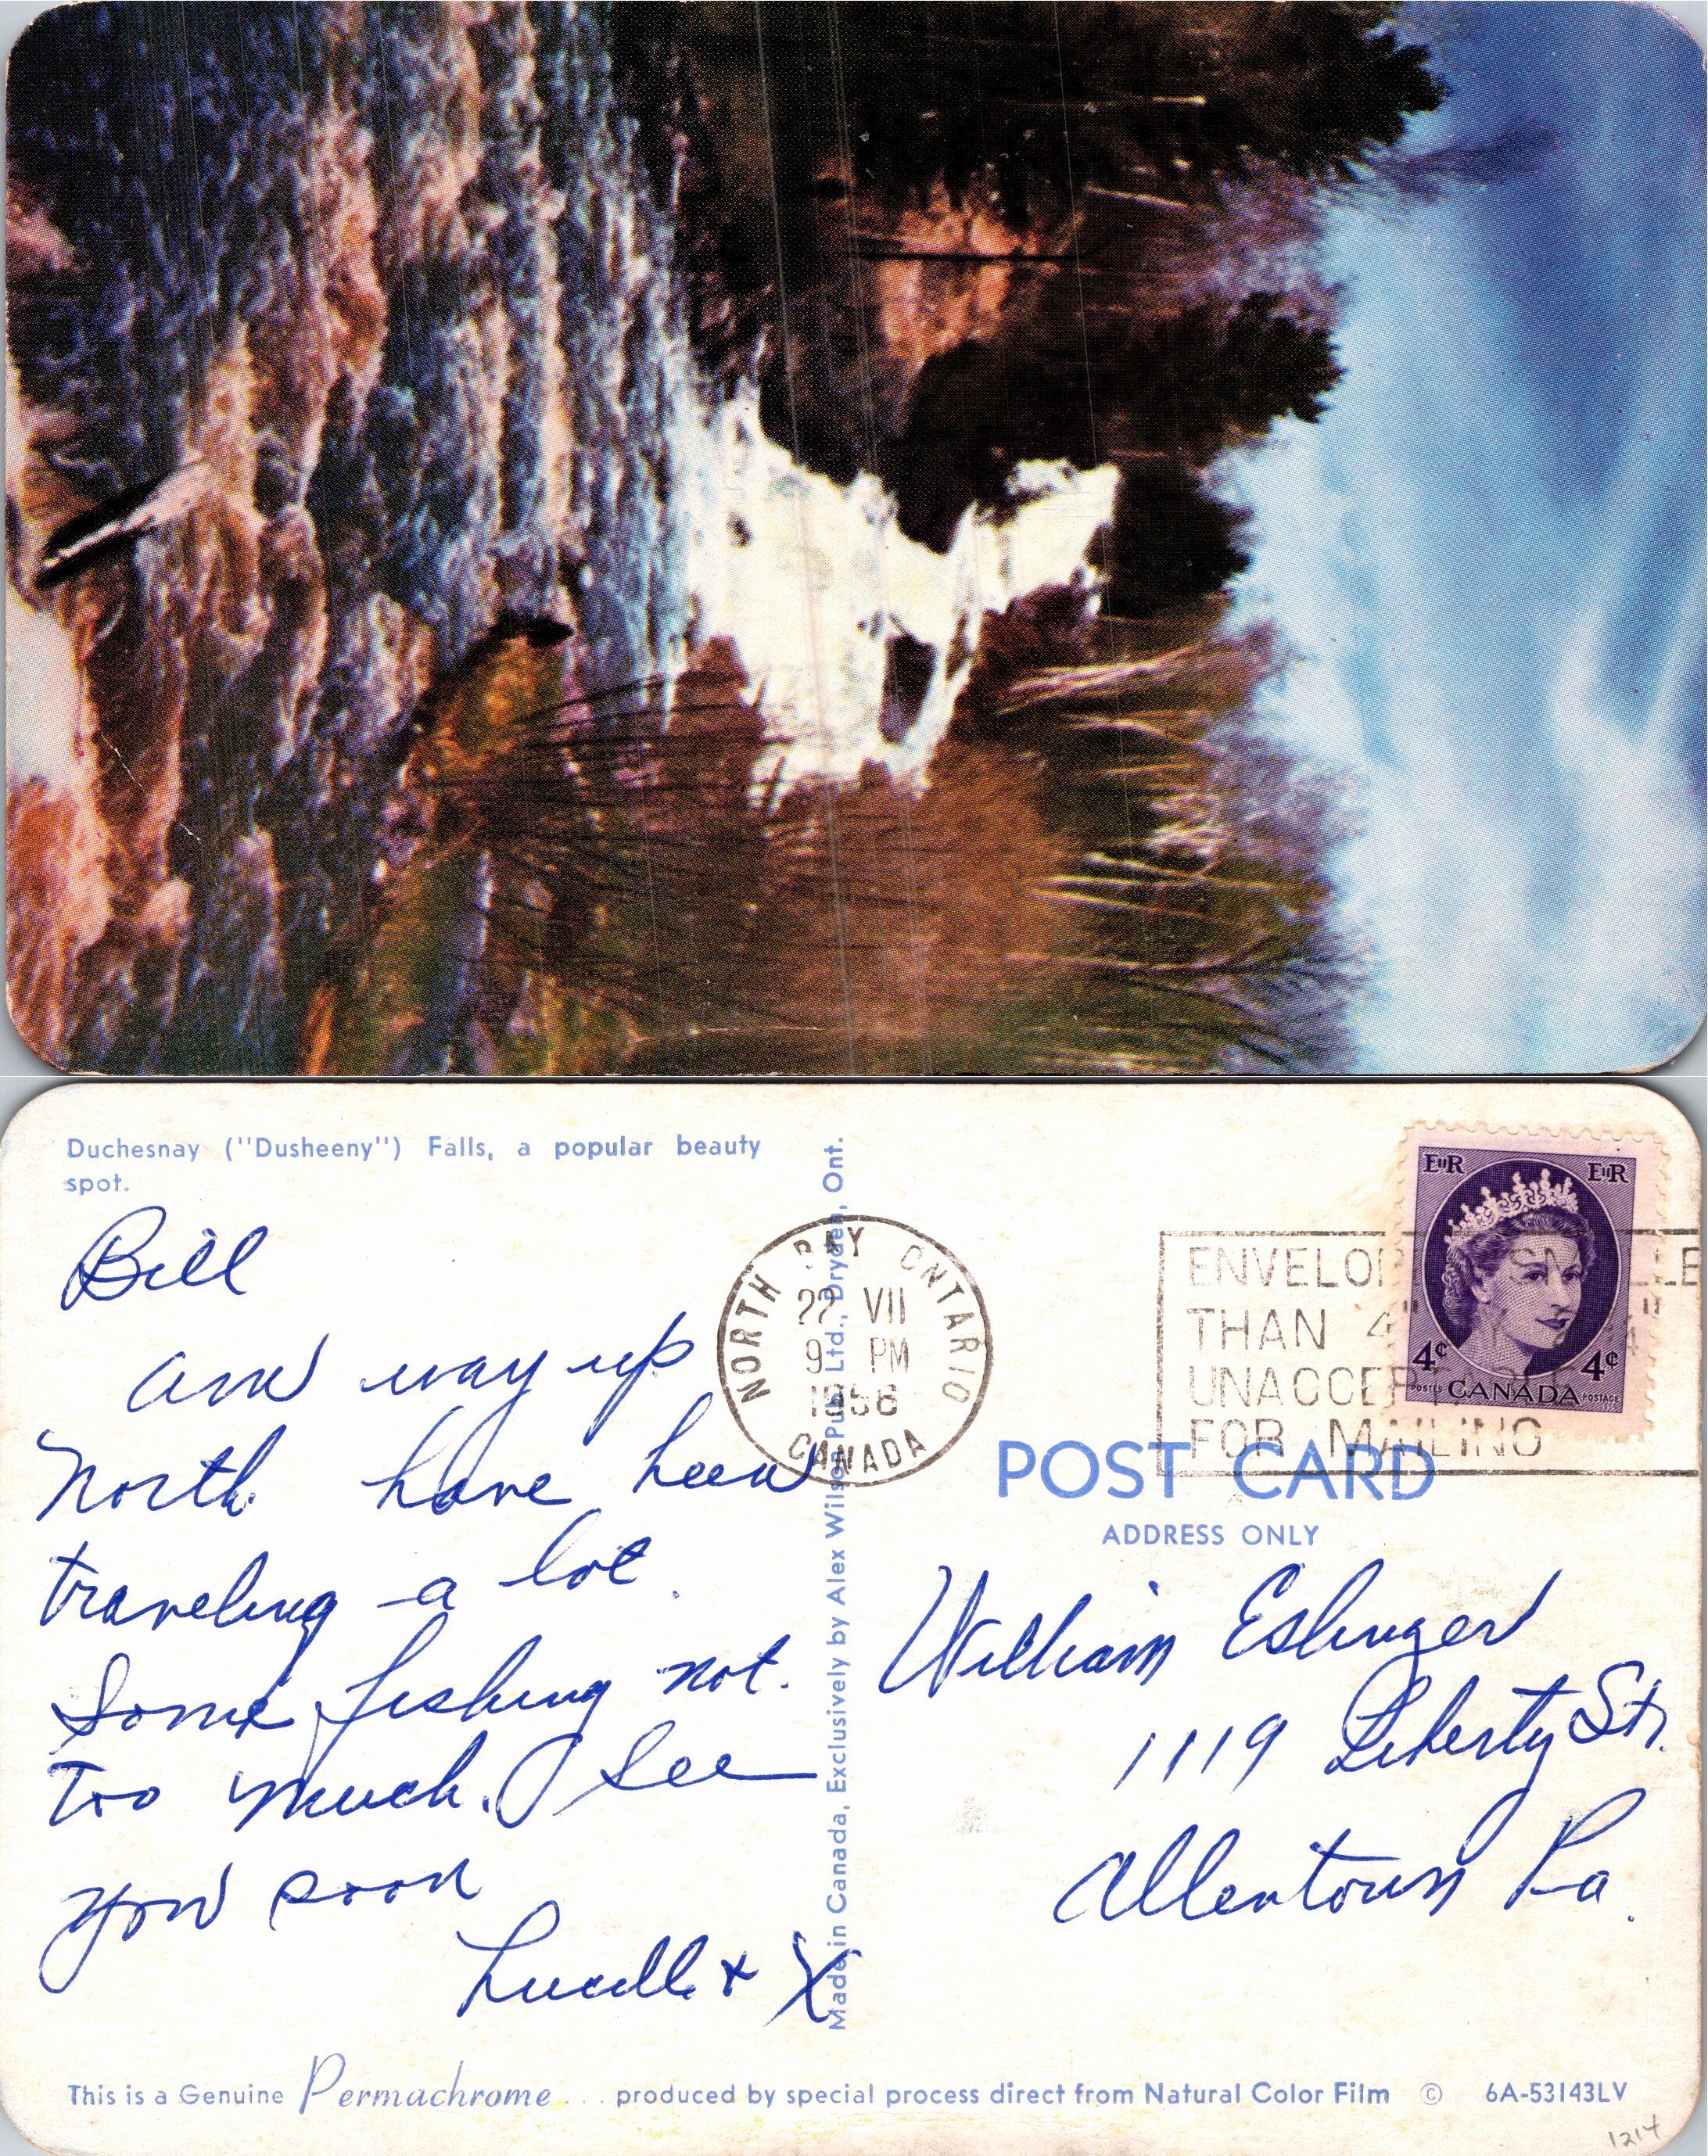 Duchesnay ("Dusheeny") Falls, a popular beauty
spot.
Bill
am way up
North have been
traveling a lot.
Some fishing not.
too much. See
you soon
Lucille + X
Made in Canada, Exclusively by Alex Wilson Pub. Ltd., Dryden, Ont.
NORTH BAY ONTARIO
22 VII
9 PM
1958
CANADA
ENVELOP
THAN 4"
UNACCEP
FOR MAILING
EIIR EIIR
4¢ 4¢
POSTES CANADA POSTAGE
POST CARD
ADDRESS ONLY
William Eslinger
1119 Liberty St.
Allentown Pa.
This is a Genuine Permachrome... produced by special process direct from Natural Color Film © 6A-53143LV
1214